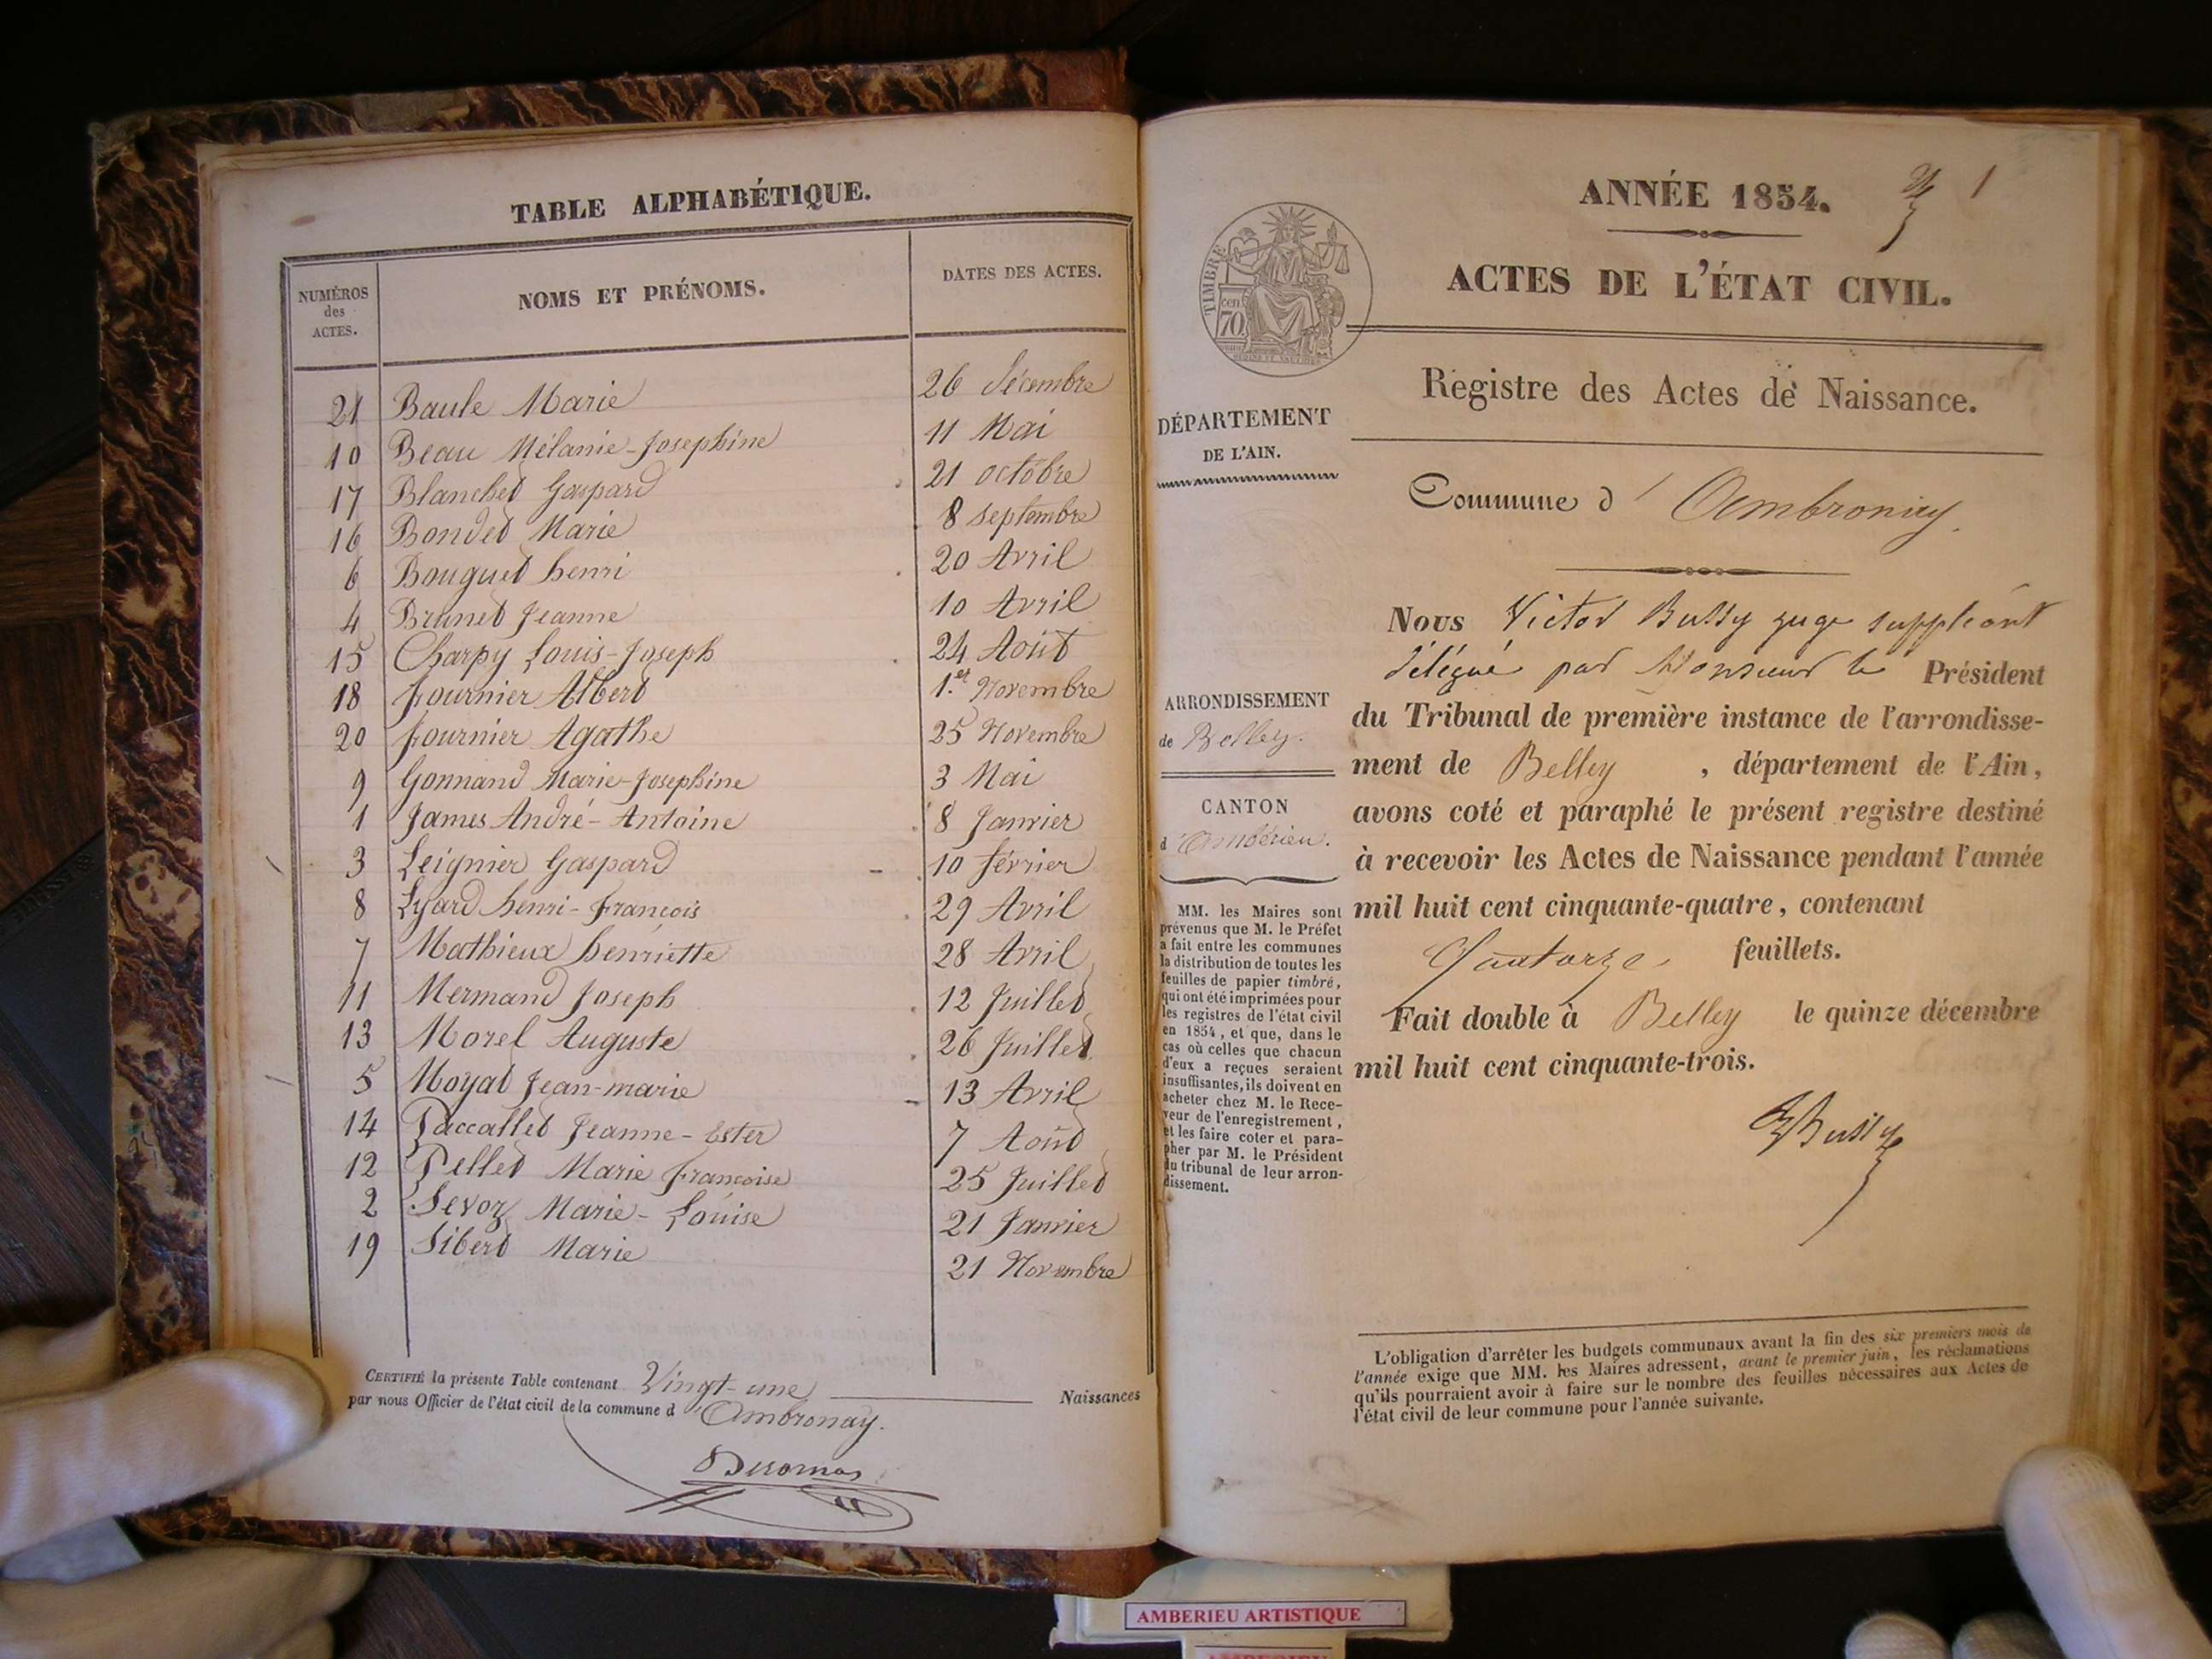 TABLE ALPHABÉTIQUE.
NUMÉROS des ACTES. NOMS ET PRÉNOMS. DATES DES ACTES.
21 Baule Marie 26 décembre
10 Beau Mélanie-Josephine 11 Mai
17 Blanchet Gaspard 21 octobre
16 Bondet Marie 8 septembre
6 Bouguet henri 20 Avril
4 Brunet Jeanne 10 Avril
15 Charpy Louis-Joseph 24 Août
18 fournier Albert 1.er Novembre
20 fournier Agathe 25 Novembre
9 Gonnand Marie-Josephine 3 Mai
1 James André-Antoine 8 Janvier
3 Leignier Gaspard 10 février
8 Lyard henri-françois 29 Avril
7 Mathieux henriette 28 Avril
11 Mermand Joseph 12 Juillet
13 Morel Auguste 26 Juillet
5 Moyat Jean-marie 13 Avril
14 Paccallet Jeanne-Ester 7 Août
12 Pellet Marie françoise 25 Juillet
2 Sevoz Marie-Louise 21 Janvier
19 Sibert Marie 21 Novembre
CERTIFIÉ la présente Table contenant Vingt-une Naissances
par nous Officier de l'état civil de la commune d'Ambronay.
ANNÉE 1854. 1
ACTES DE L'ÉTAT CIVIL.
TIMBRE
70 cen.
Registre des Actes de Naissance.
DÉPARTEMENT
DE L'AIN.
Commune d'Ambronay.
Nous Victor Bussy juge suppléant
délégué par Monsieur le Président
du Tribunal de première instance de l'arrondisse-
ment de Belley, département de l'Ain,
avons coté et paraphé le présent registre destiné
à recevoir les Actes de Naissance pendant l'année
mil huit cent cinquante-quatre, contenant
Quatorze feuillets.
Fait double à Belley le quinze décembre
mil huit cent cinquante-trois.
Bussy
ARRONDISSEMENT
de Belley.
CANTON
d'Ambérieu.
MM. les Maires sont
prévenus que M. le Préfet
a fait entre les communes
la distribution de toutes les
feuilles de papier timbré,
qui ont été imprimées pour
les registres de l'état civil
en 1854, et que, dans le
cas où celles que chacun
d'eux a reçues seraient
insuffisantes, ils doivent en
acheter chez M. le Rece-
veur de l'enregistrement,
et les faire coter et para-
pher par M. le Président
du tribunal de leur arron-
dissement.
L'obligation d'arrêter les budgets communaux avant la fin des six premiers mois de
l'année exige que MM. les Maires adressent, avant le premier juin, les réclamations
qu'ils pourraient avoir à faire sur le nombre des feuilles nécessaires aux Actes de
l'état civil de leur commune pour l'année suivante.
AMBERIEU ARTISTIQUE